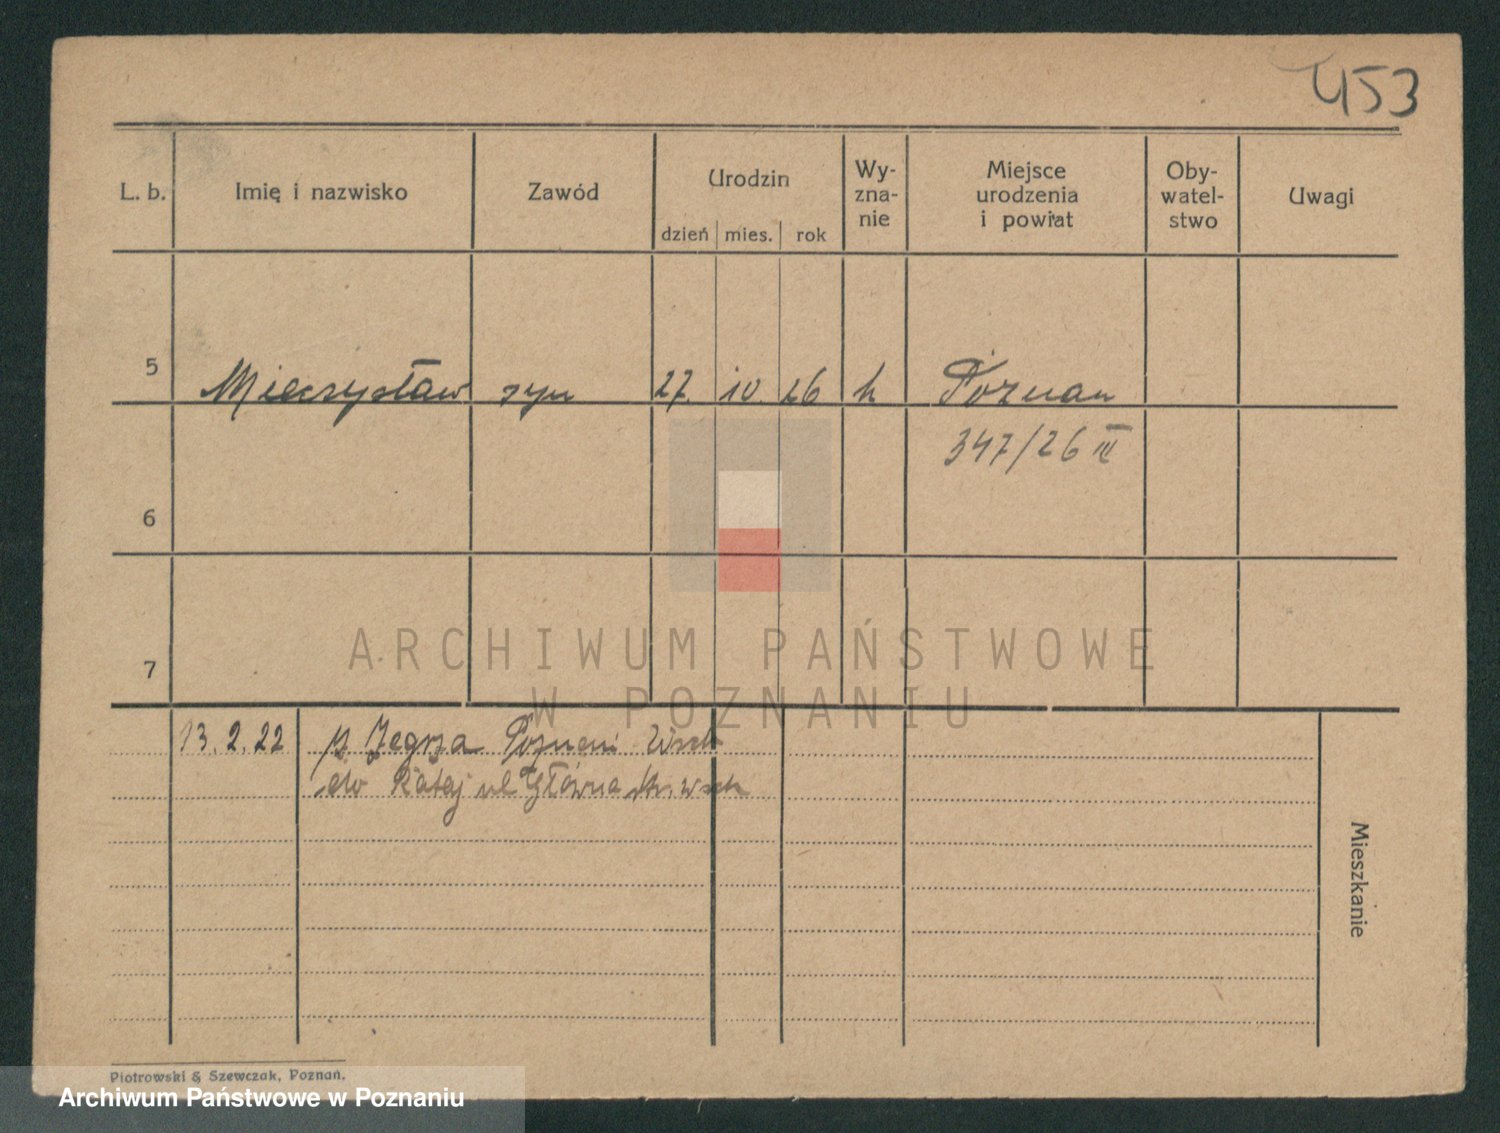 453
L. b. Imię i nazwisko Zawód Urodzin dzień mies. rok Wy-
zna-
nie Miejsce
urodzenia
i powiat Oby-
watel-
stwo Uwagi
5 Mieczysław syn 27. 10. 26 k Poznań
347/26 III
6
7
ARCHIWUM PAŃSTWOWE
W POZNANIU
13.2.22 z Żegrza Poznań Wsch
do Rataj ul Główna
Mieszkanie
Piotrowski & Szewczak, Poznań.
Archiwum Państwowe w Poznaniu